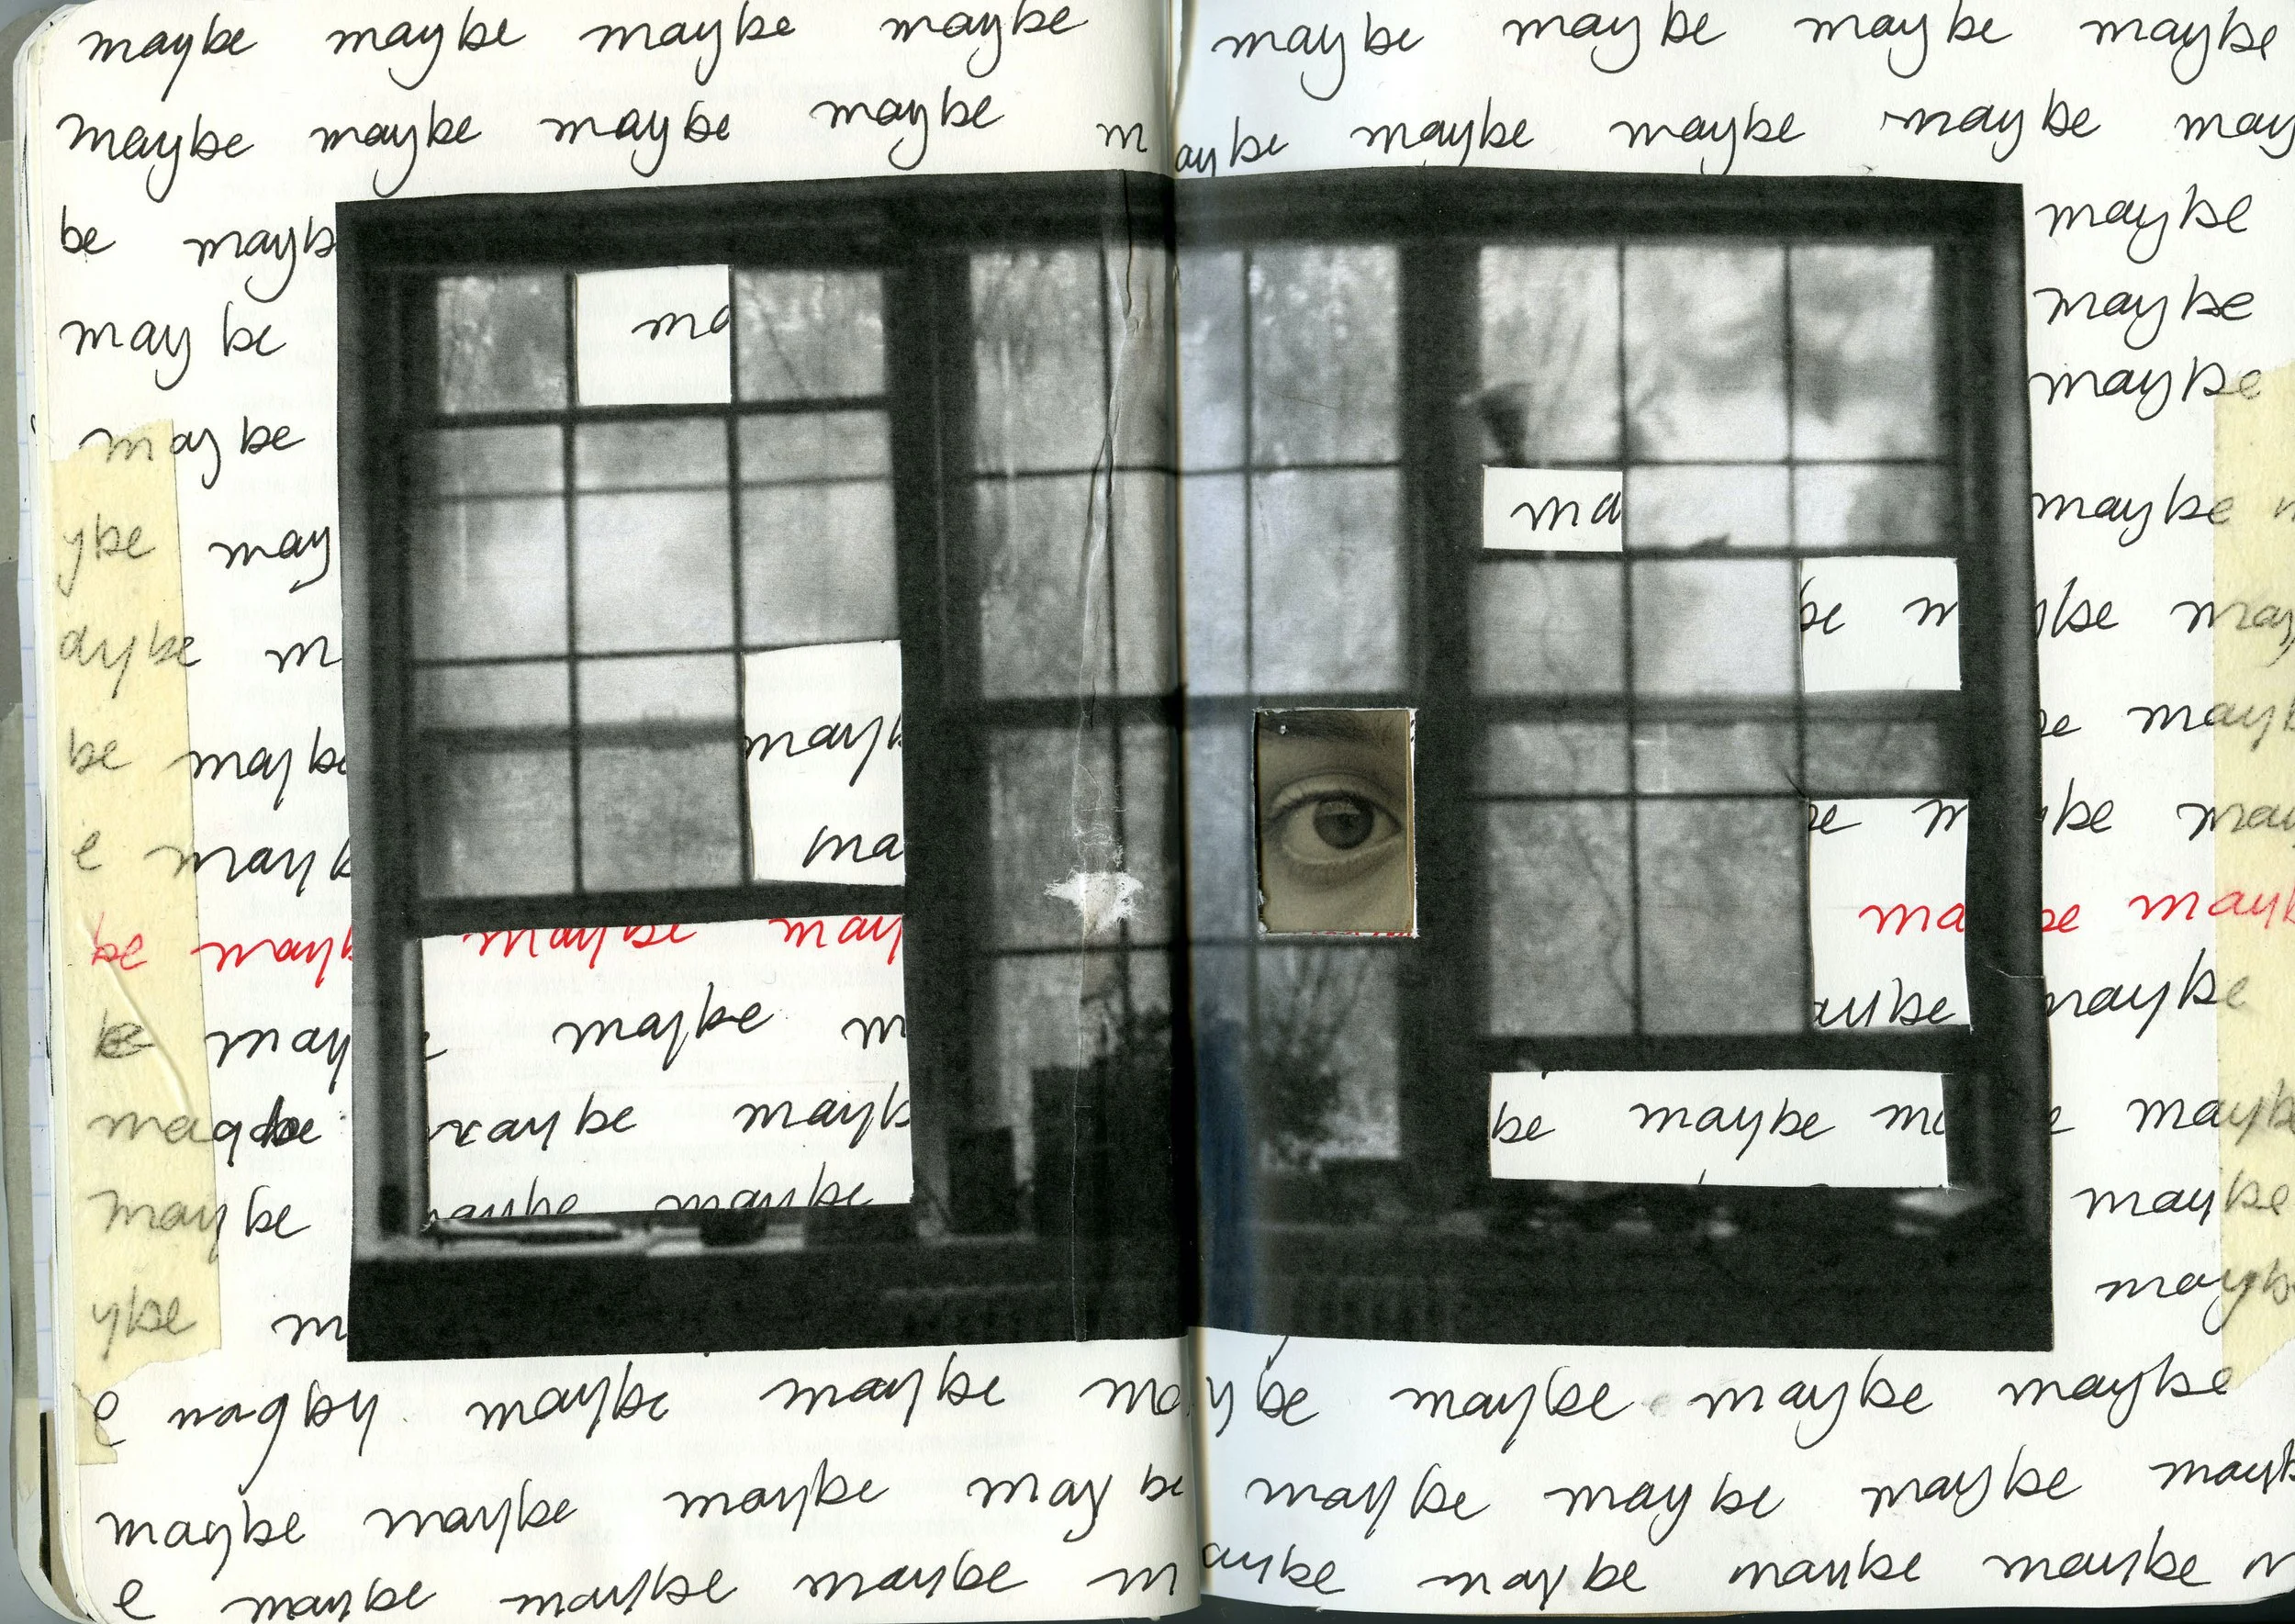 maybe maybe maybe maybe maybe maybe maybe maybe
maybe maybe maybe maybe maybe maybe maybe maybe may
be mayb maybe
maybe ma maybe
maybe maybe
ybe may ma maybe m
aybe m be m ybe may
be maybe mayb be mayb
e mayb ma be m ybe may
be mayb maybe may ma be mayb
be may maybe m aybe maybe
maybe maybe mayb be maybe ma e maybe
maybe maybe maybe maybe
ybe m mayb
e magby maybe maybe maybe maybe maybe maybe
maybe maybe maybe maybe maybe maybe maybe mayb
e maybe maybe maybe maybe maybe maybe maybe m